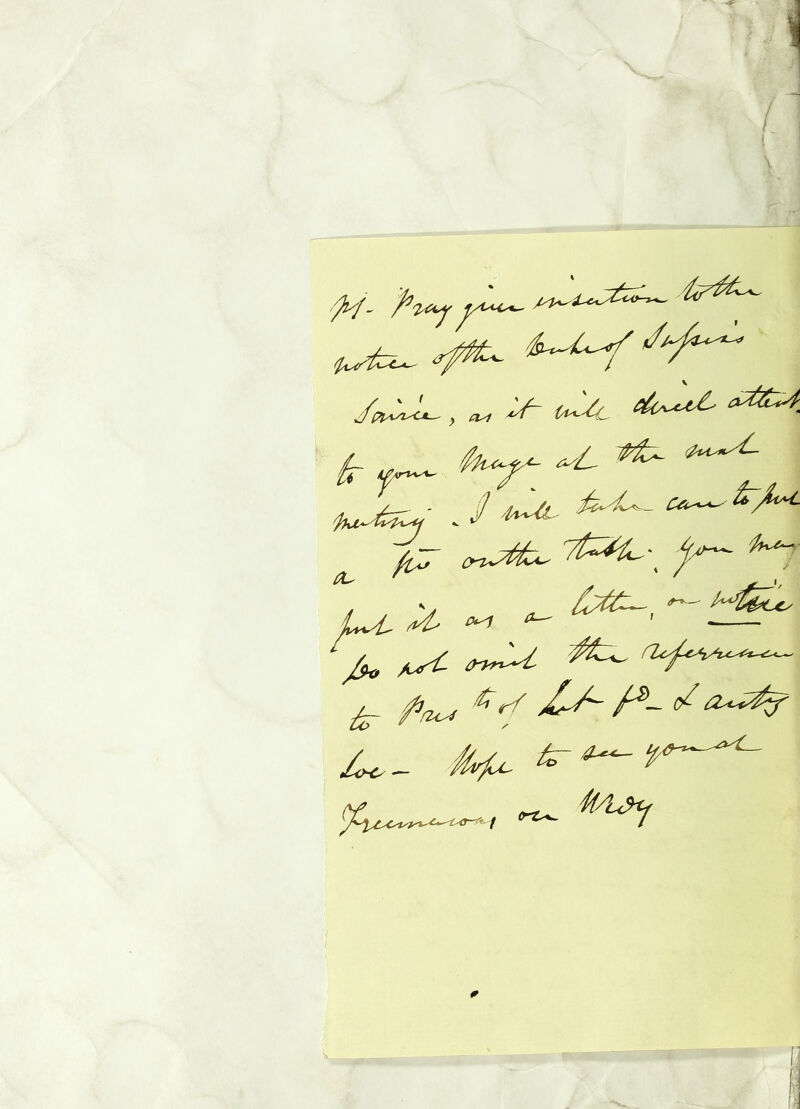 PS - Pray give insertion to the
notice of the Duke of Sussex's
Soirée, as it will direct attent
to your Mage at the next
meeting. I will take care to put
a No on the table. you may
put it as a letter, or notice
Do not omit the referrence
to Pres ts of Lit fd - & antiq
Soc - Hope to see you at
Freemasons on Wedy